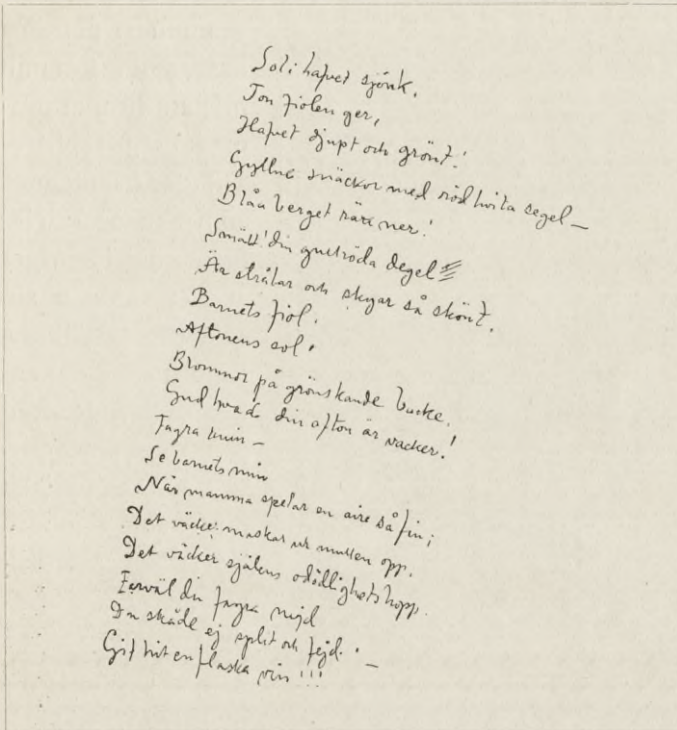 Sol i hafvet sjönk.
Ton fiolen ger,
Hafvet djupt och grönt!
Gyllne snäckor med röd hvita segel –
Blåa berget nära ner!
Smält! din gnetröda degel
Är strålar och skyar så skönt.
Barnets fiol.
Aftonens sol.
Blommor på grönskande backe.
Gud hvad din afton är vacker!
Fagra min –
Se barnets min
När mamma spelar en aire så fin;
Det väcker maskar ur mullen opp.
Det väcker själens odödlighetshopp.
Farväl du fagra nejd
Du skåde ej split och fejd. –
Gif hit en flaska vin!!!